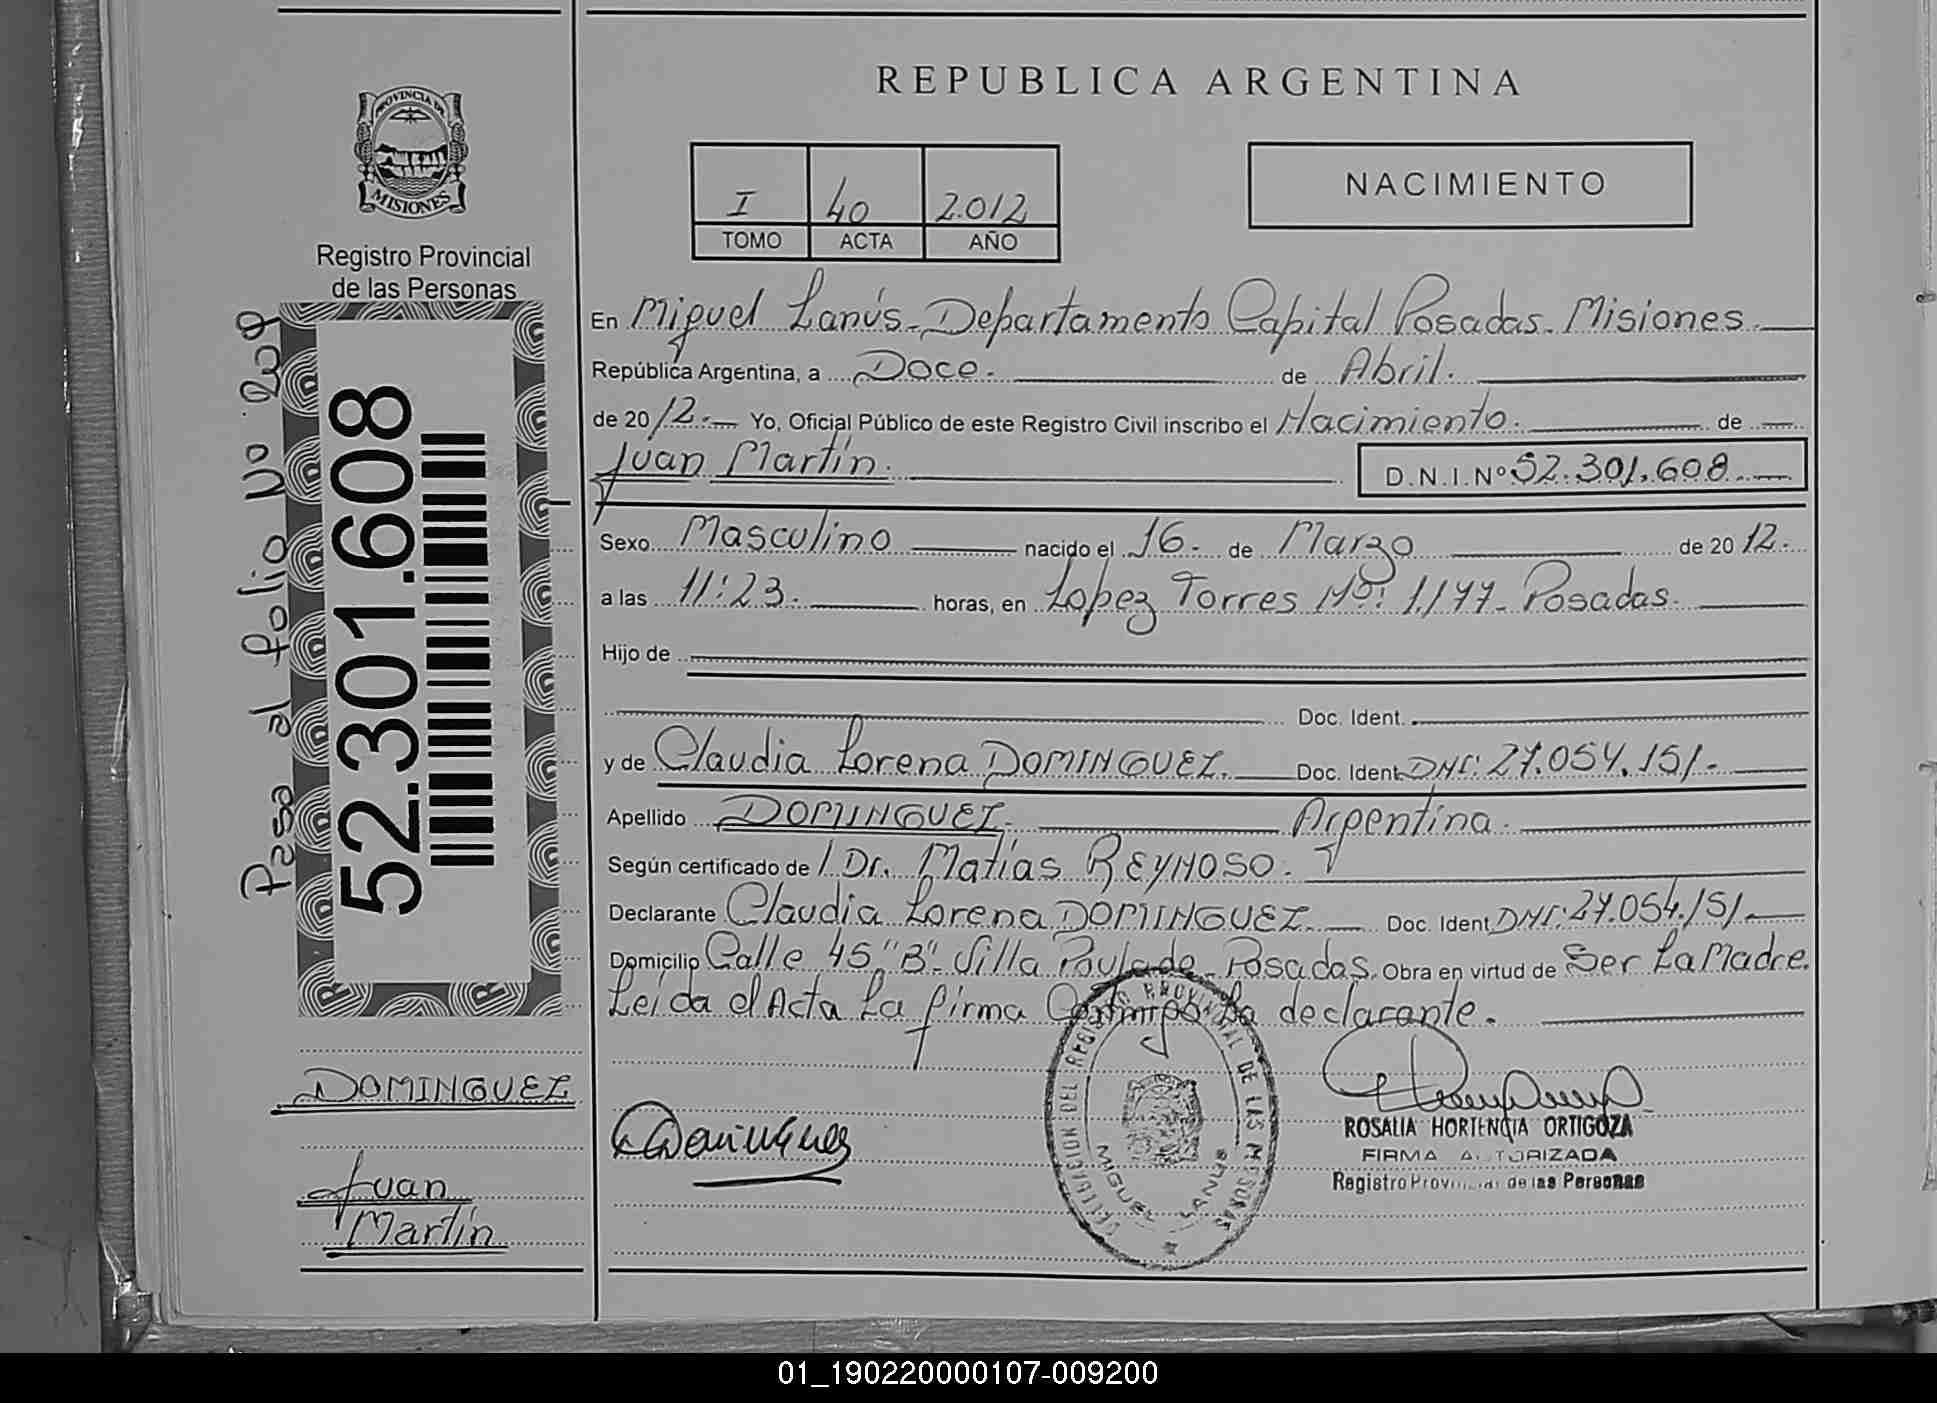 REPUBLICA ARGENTINA
PROVINCIA DE
MISIONES
Registro Provincial
de las Personas
I 40 2.012
TOMO ACTA AÑO
NACIMIENTO
Pasa al folio No 209
52.301.608
En Miguel Lanús - Departamento Capital Posadas - Misiones
República Argentina, a Doce. de Abril.
de 20 12.- Yo, Oficial Público de este Registro Civil inscribo el Nacimiento. de
Juan Martín. D.N.I.Nº 52.301.608
Sexo Masculino nacido el 16. de Marzo de 20 12.-
a las 11:23. horas, en Lopez Torres Nº: 1.177- Posadas.
Hijo de
Doc. Ident.
y de Claudia Lorena DOMINGUEZ. Doc. Ident. DNI: 27.054.151.-
Apellido DOMINGUEZ. Argentina.
Según certificado de / Dr. Matías REYNOSO.
Declarante Claudia Lorena DOMINGUEZ. Doc. Ident. DNI: 27.054.151.
Domicilio Calle 45 "B". Villa Poujade - Posadas. Obra en virtud de Ser La Madre.
Leída el Acta La firma Conmigo La declarante.
DOMINGUEZ
Juan
Martín
DELEGACION DEL REGISTRO PROVINCIAL DE LAS PERSONAS
MIGUEL LANUS
ROSALIA HORTENCIA ORTIGOZA
FIRMA AUTORIZADA
Registro Provincial de las Personas
01_190220000107-009200